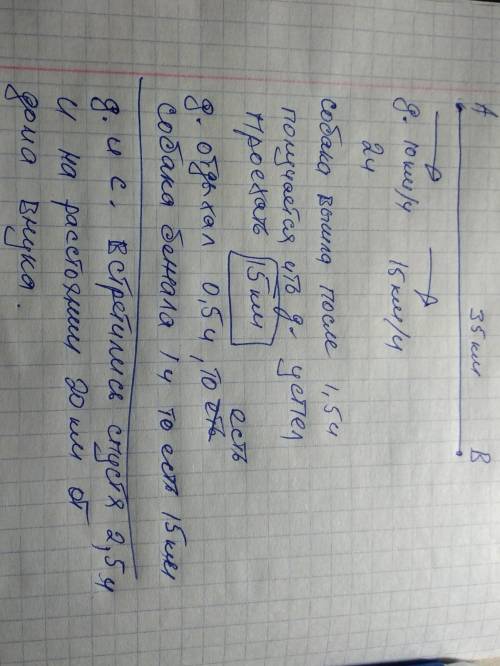 A 35 км B
д. 10 км/ч 15 км/ч
2ч
собака вышла после 1,5 ч
получается что д. успел
проехать 15 км
д. отдыхал 0,5 ч, то есть
собака бежала 1 ч то есть 15 км
д. и с. встретились спустя 2,5 ч
и на расстоянии 20 км от
дома внука.